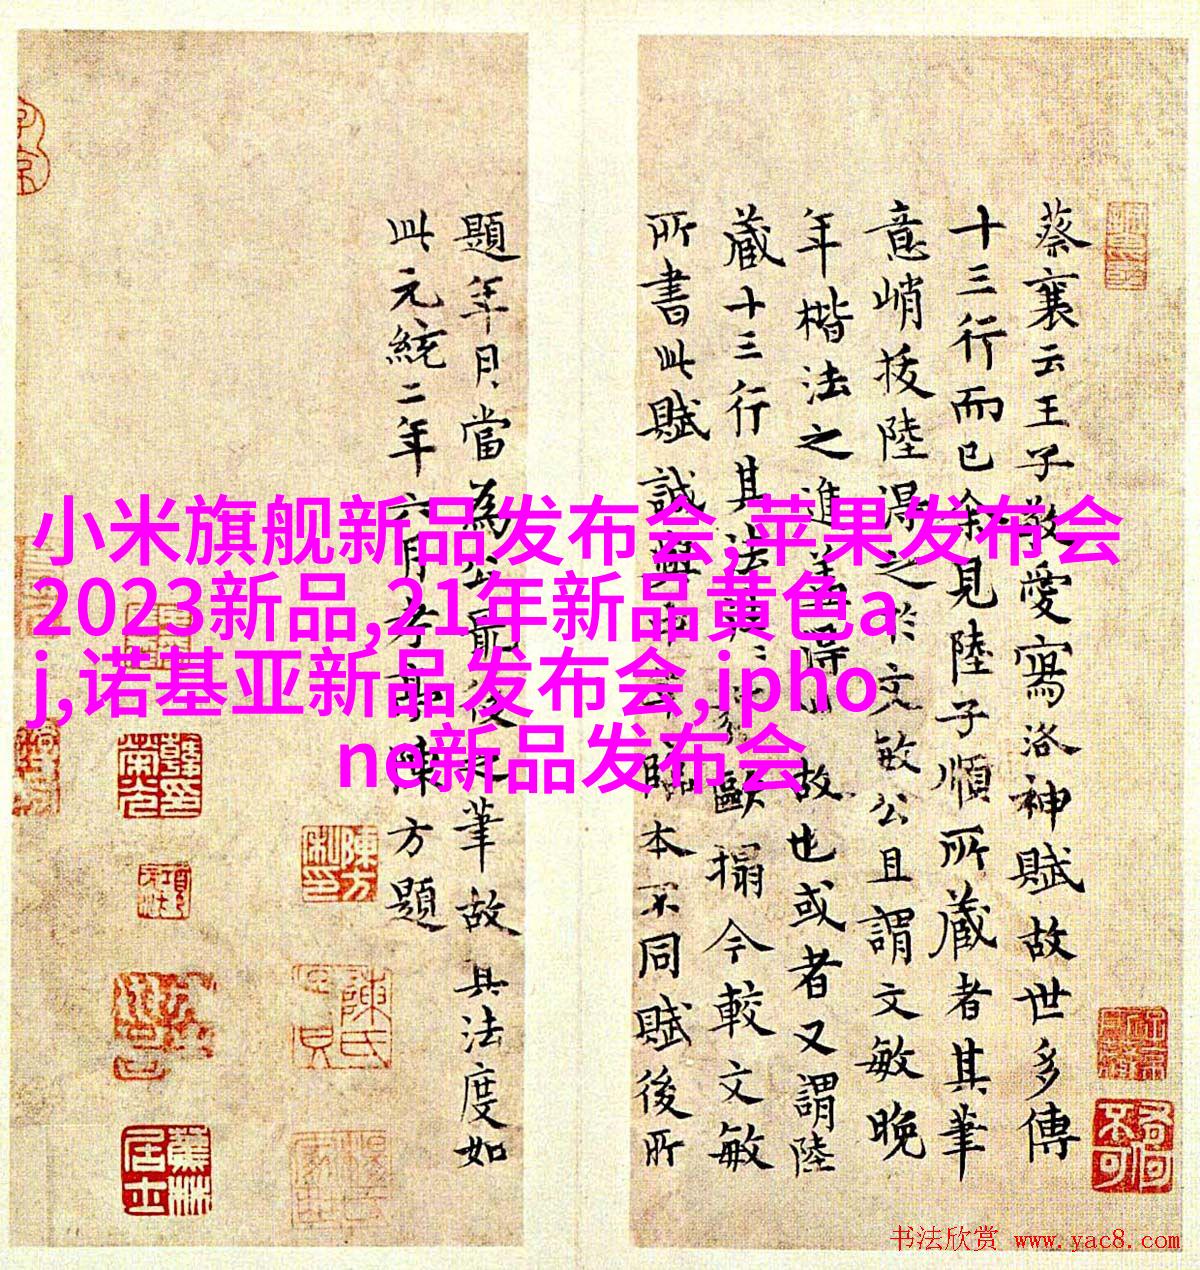 小米旗舰新品发布会,苹果发布会
2023新品,21年新品黄色a
j,诺基亚新品发布会,ipho
ne新品发布会
蔡襄云王子敬愛寫洛神賦故世多傳
十三行而已余見陸子順所藏者其筆
意峭拔陸得之於文敏公且謂文敏晚
年楷法之進盖得此故也或者又謂陸
藏十三行其法歐搨今較文敏
所書此賦誠與臨本不同賦後所
題年月當為公最後之筆故其法度如
此元統二年六月考亭陳方題
蕉林居士
书法欣赏 www.yac8.com